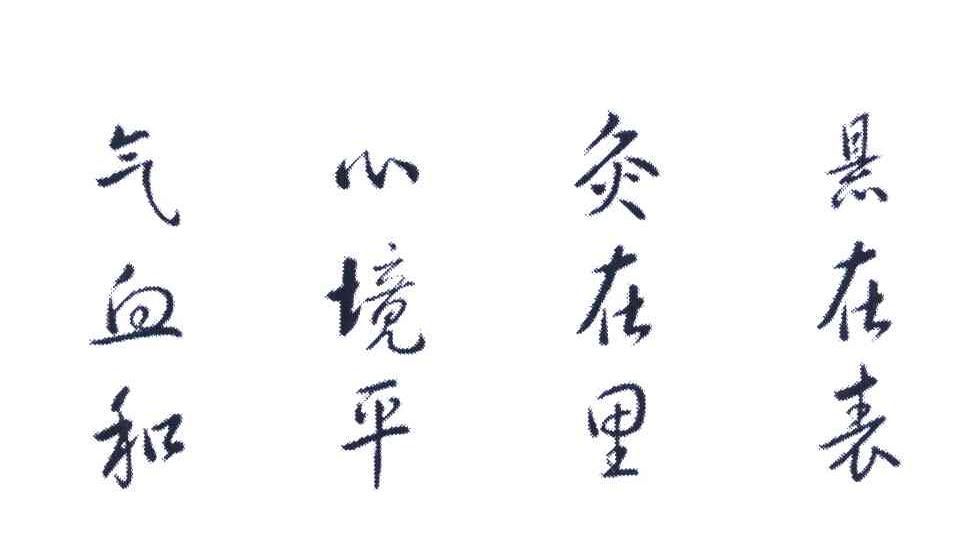 悬在表
灸在里
心境平
气血和